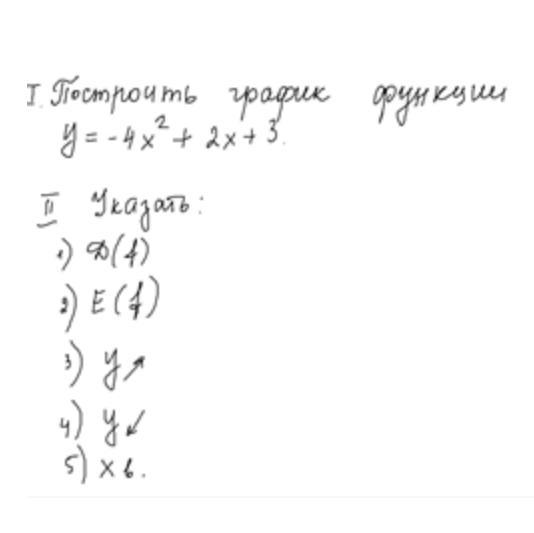 I. Построить график функции
y = -4x² + 2x + 3.
II Указать:
1) D(f)
2) E(f)
3) y ↗
4) y ↙
5) x в.